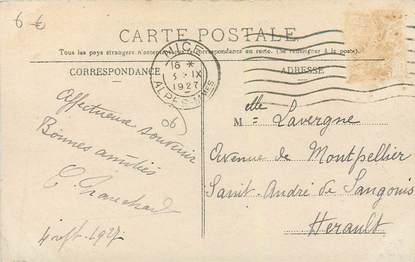 6 €
CARTE POSTALE
Tous les pays étrangers n'acceptent pas la correspondance au recto. (Se renseigner à la poste).
CORRESPONDANCE
ADRESSE
NICE
16 *
3 - IX
1927
ALPES-MARMES
06
Affectueux souvenir
Bonnes amitiés
4 sept. 1927
Melle Lavergne
Avenue de Montpellier
Saint-André de Sangonis
Herault